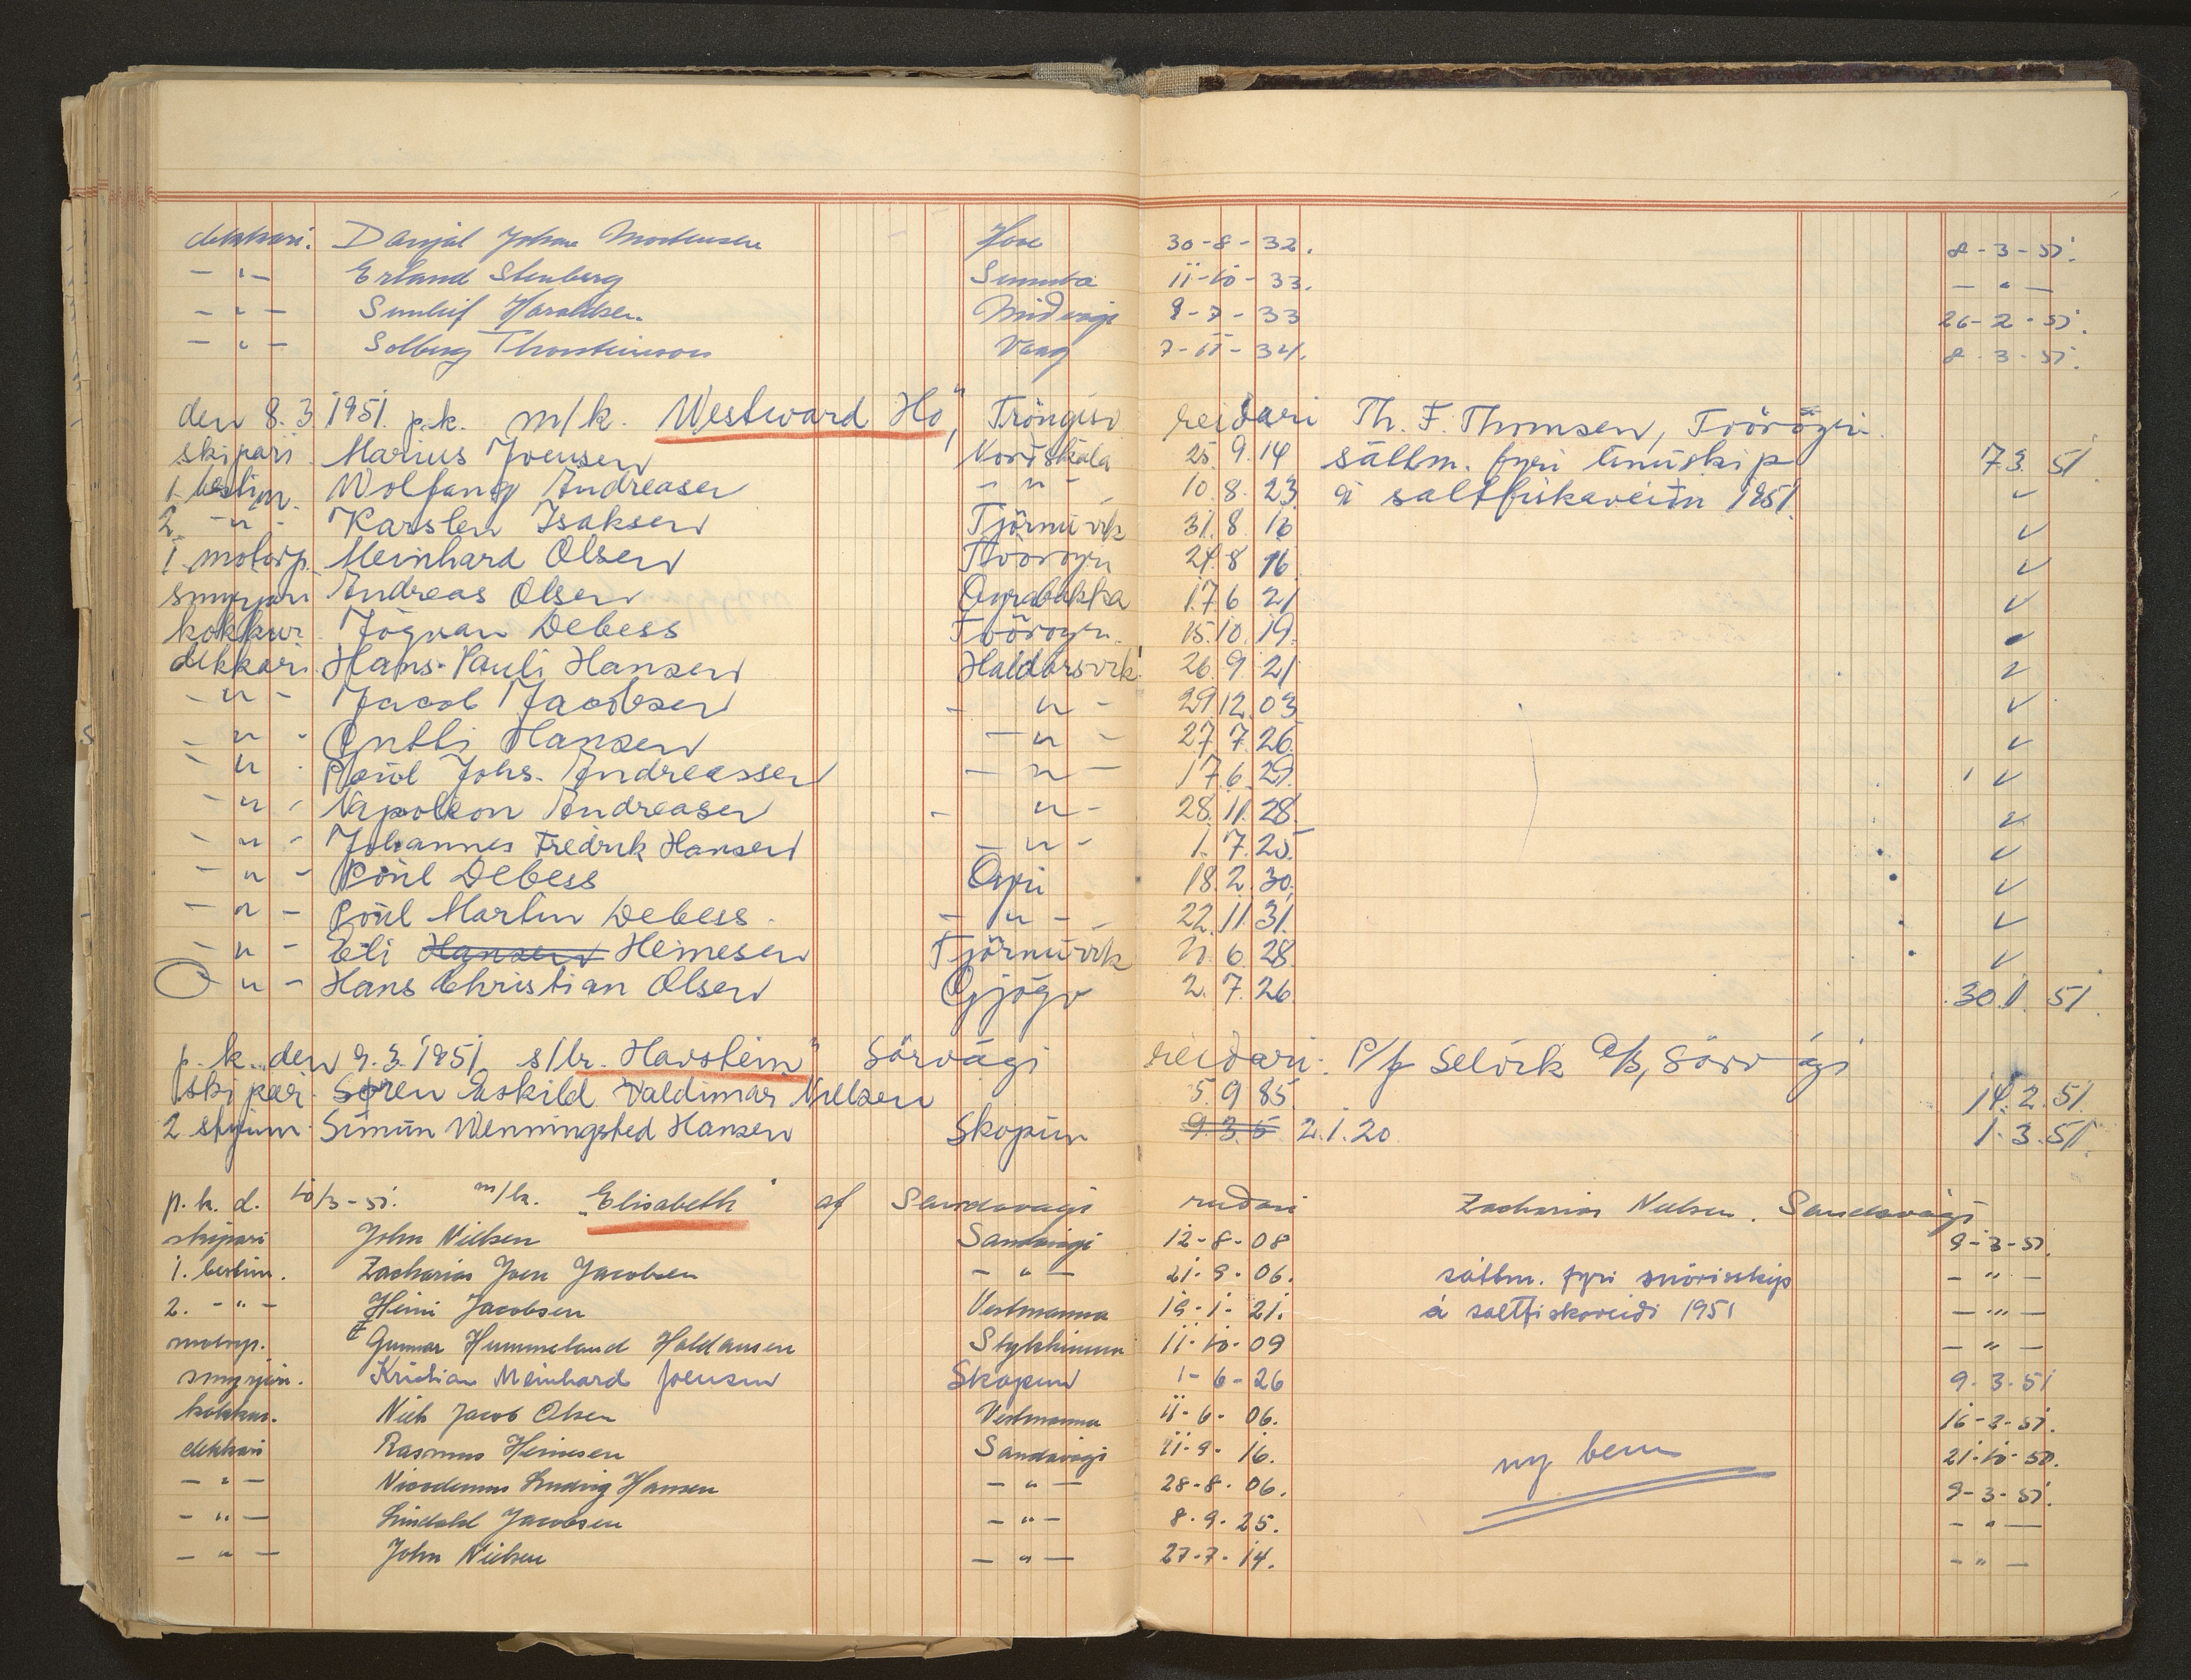 dekkari. Danjal Johan Mortensen Hove 30-8-32. 8-3-51.
- " - Erland Stenberg Sumba 11-10-33. - " -
- " - Sunleif Haraldsen Miðvági 9-7-33 26-2-51.
- " - Solberg Thorsteinsson Vaag 7-11-34. 8-3-51.
den 8.3 1951. p.k. m/k. Westward Ho", Tröngisv reiðari Th. F. Thomsen, Tvöröyri.
skipari Marius Joensen Norðskála 25. 9. 14 sáttm. fyri línuskip 7.3. 51
1. bestim. Wolfang Andreasen - " - 10. 8. 23. á saltfiskaveiðu 1951. ✓
2. - " - Karsten Isaksen Tjörnuvík 31. 8. 10 ✓
1. motorp. Meinhard Olsen Tvöroyri 24. 8 16 ✓
smyrjari Andreas Olsen Oyrabakka 17. 6 21 ✓
kokkur. Jögvan Debess Tvöroyri. 15. 10. 19.
dekkari. Hans-Pauli Hansen Haldarsvik 26. 9. 21 ✓
- " - Jacob Jacobsen - " - 29. 12. 03 ✓
- " - Gutti Hansen - " - 27. 7. 26. ✓
- " - Poul Johs. Andreassen - " - 17. 6. 29. ✓
- " - Napoleon Andreasen - " - 28. 11. 28. ✓
- " - Johannes Fredrik Hansen - " - 1. 7. 25. ✓
- " - Pöul Debess Oyri 18. 2. 30. ✓
- " - Pöul Martin Debess. - " - 22. 11. 31. ✓
- " - Eli Hansen Heinesen Tjörnuvík 11. 6. 28. ✓
- " - Hans Christian Olsen Gjógv 2. 7. 26 30. 1. 51
p.k. den 9.3.1951 s/br. Havstein" Sörvági reiðari: P/f Selvík A/S, Sörvági
skipar. Søren Eskild Valdimar Nielsen 5. 9 85. 14. 2. 51.
2 stýrim. Símun Wenningsted Hansen Skopun 9. 3. 5 2.1.20. 1. 3. 51
p. k. d. 10/3-51. m/k. "Elisabeth" af Sandavági reiðari Zacharias Nielsen. Sandavági
skipari John Nielsen Sandavági 12-8-08 9-3-51.
1. bestim. Zacharias Joen Jacobsen - " - 21-9-06. sáttm. fyri snörisskip - " -
2. - " - Heini Jacobsen Vestmanna 19-1-21. á saltfiskaveiði 1951 - " -
motorp. Gunnar Hummeland Haldansen Stykkinum 11-10-09 - " -
smyrjari. Kristian Meinhard Joensen Skopun 1-6-26 9-3-51
kokkur. Niels Jacob Olsen Vestmanna 11-6-06. 16-2-51.
dekkari Rasmus Heinesen Sandavági 11-9-16. 21-10-50.
- " - Nicodemus Ludvig Hansen - " - 28-8-06. ny bem 9-3-51.
- " - Lindald Jacobsen - " - 8-9-25. - " -
- " - John Nielsen - " - 27-7-14. - " -